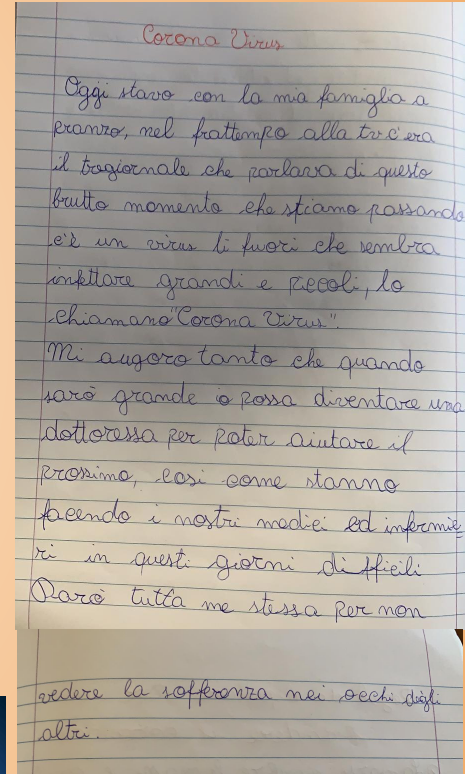 Corona Virus
Oggi stavo con la mia famiglia a
pranzo, nel frattempo alla tv c'era
il tegiornale che parlava di questo
brutto momento che stiamo passando
c'è un virus li fuori che sembra
infettare grandi e piccoli, lo
chiamano "Corona Virus".
Mi auguro tanto che quando
sarò grande io possa diventare una
dottoressa per poter aiutare il
prossimo, così come stanno
facendo i nostri medici ed infermie-
ri in questi giorni difficili
Darò tutta me stessa per non
vedere la sofferenza nei occhi degli
altri.